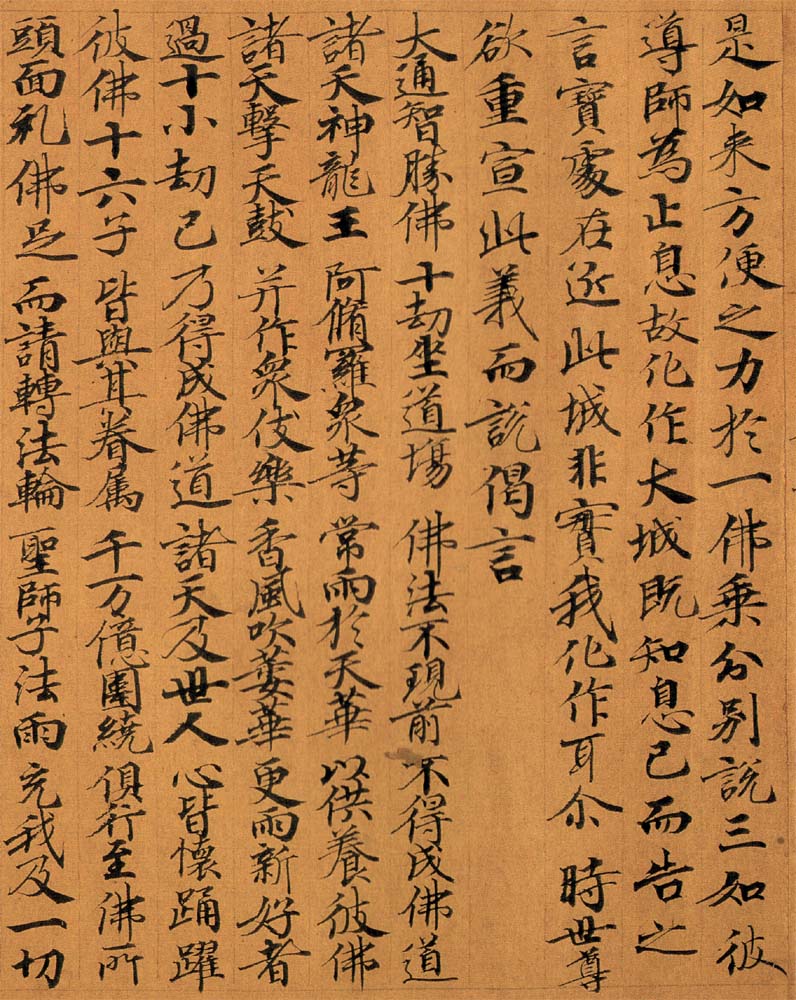 是如来方便之力於一佛乗分別説三如彼
導師為止息故化作大城既知息已而告之
言寶處在近此城非實我化作耳尒時世尊
欲重宣此義而説偈言
大通智勝佛 十劫坐道場 佛法不現前 不得成佛道
諸天神龍王 阿脩羅衆等 常雨於天華 以供養彼佛
諸天擊天鼓 并作衆伎樂 香風吹萎華 更雨新好者
過十小劫已 乃得成佛道 諸天及世人 心皆懷踊躍
彼佛十六子 皆與其眷属 千万億圍繞 俱行至佛所
頭面礼佛足 而請轉法輪 聖師子法雨 充我及一切